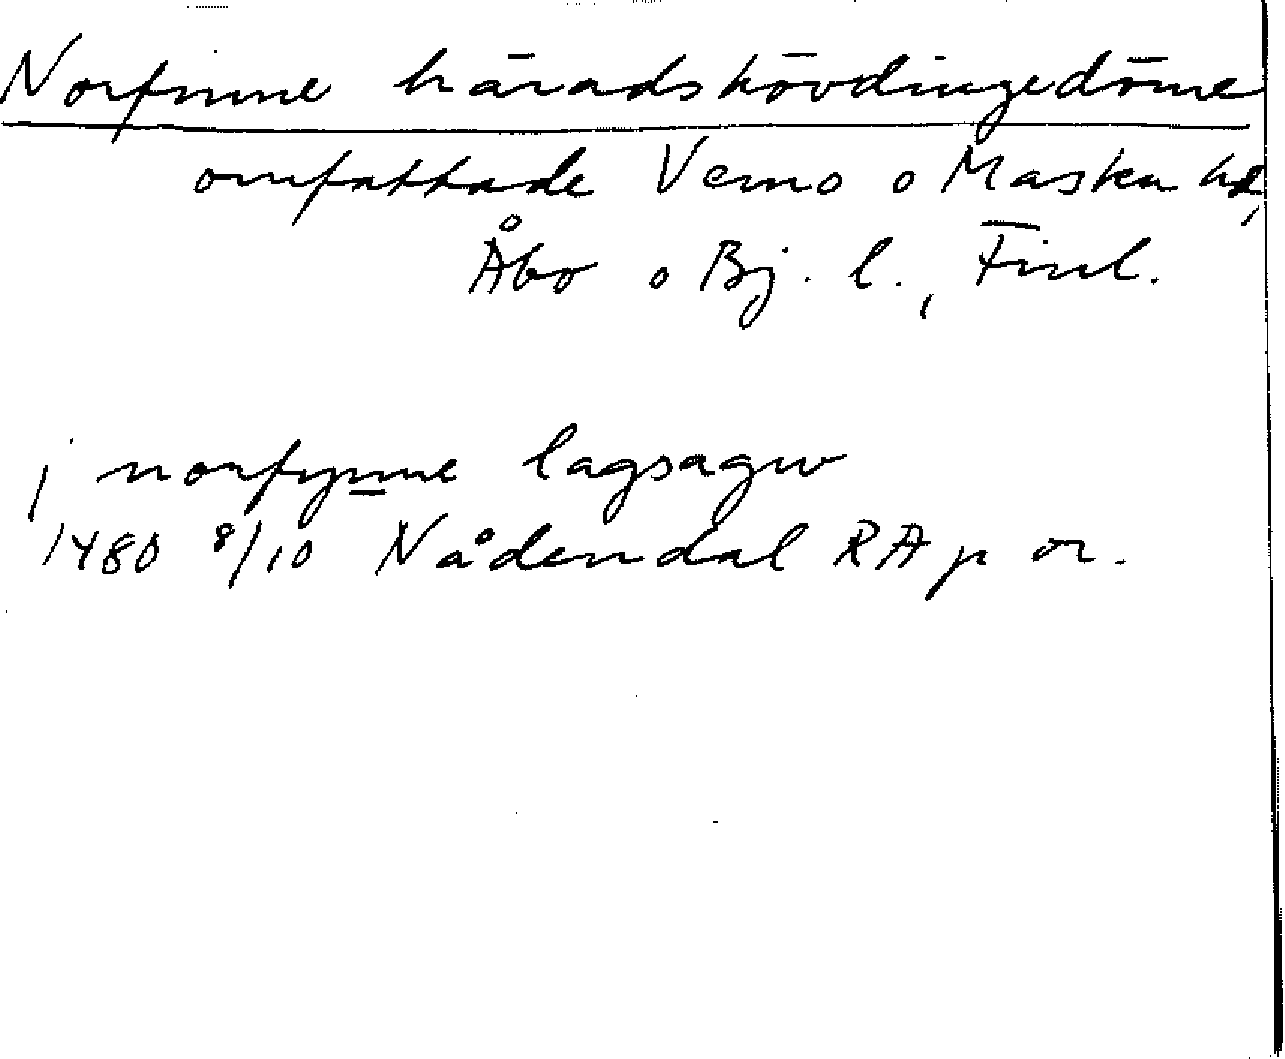 Norfinne häradshövdingedöme
omfattade Vemo o Masku hd,
Åbo o Bj. l., Finl.
j norfynne lagsagw
1480 8/10 Nådendal RAp or.